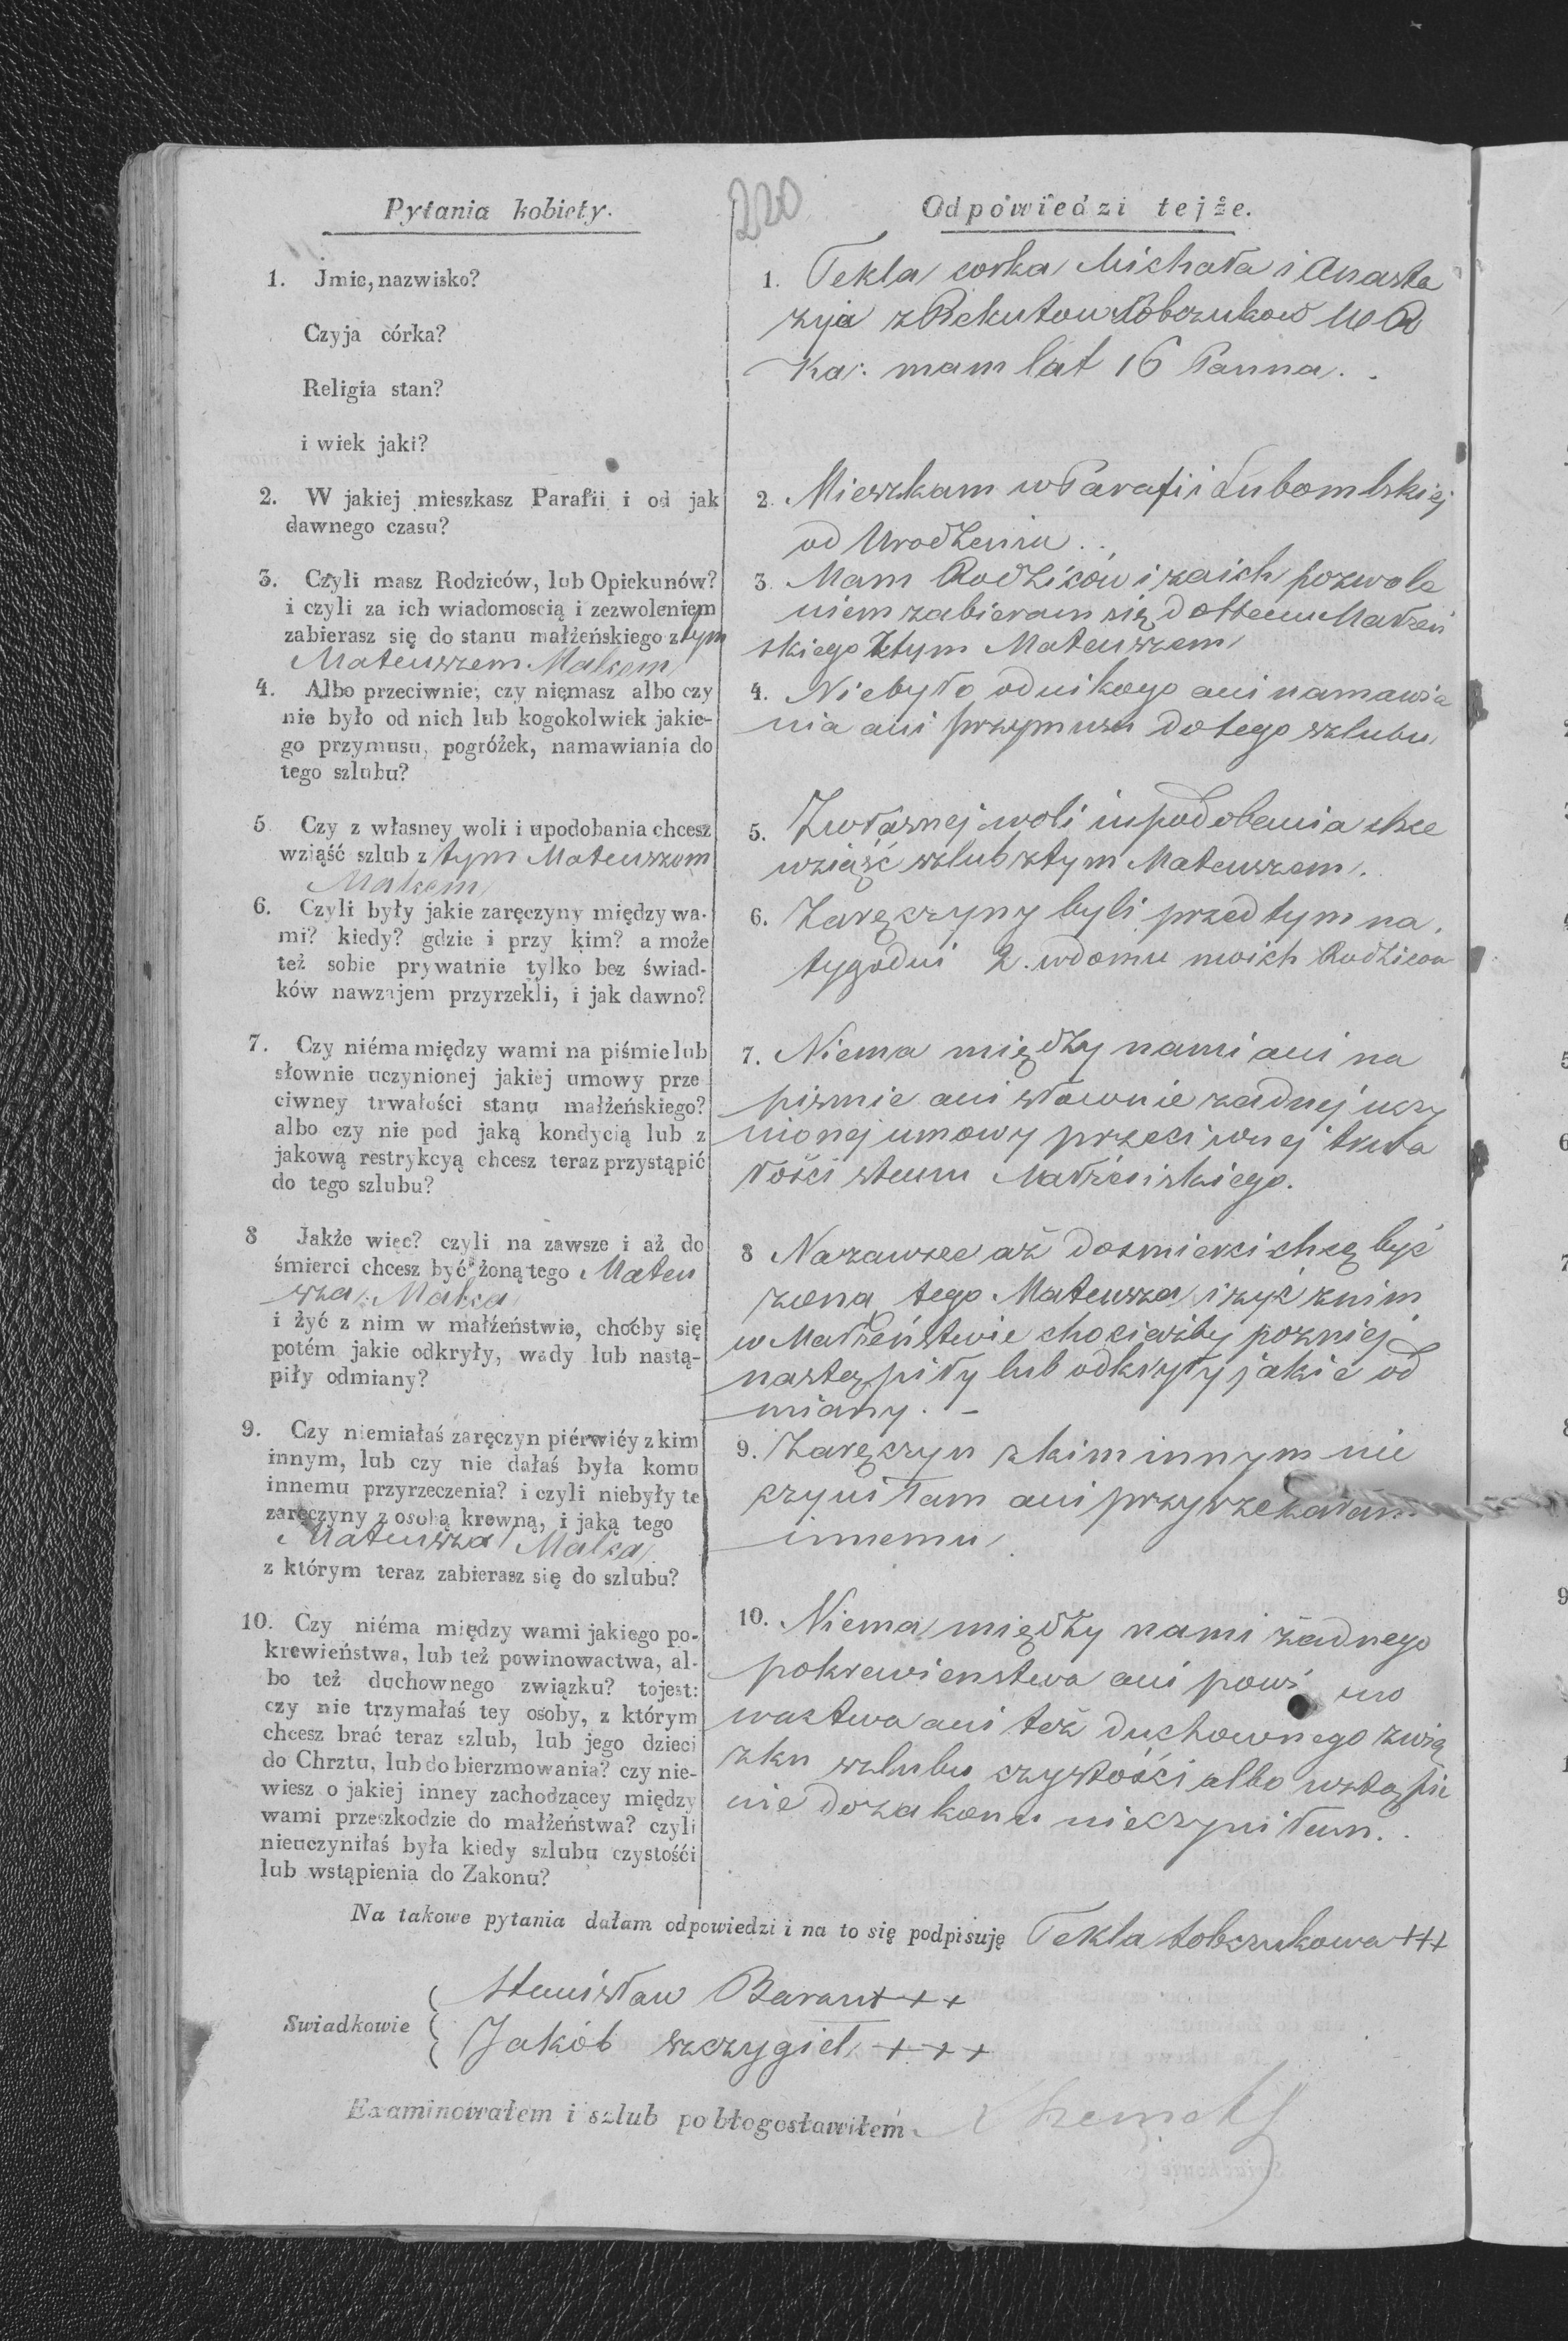 220
Pytania kobiety.
1. Jmie, nazwisko?
Czyja córka?
Religia stan?
i wiek jaki?
2. W jakiej mieszkasz Parafii i od jak
dawnego czasu?
3. Czyli masz Rodziców, lub Opiekunów?
i czyli za ich wiadomoscią i zezwoleniem
zabierasz się do stanu małżeńskiego z tym
Mateuszem Malcem
4. Albo przeciwnie, czy niemasz albo czy
nie było od nich lub kogokolwiek jakie-
go przymusu, pogróżek, namawiania do
tego szlubu?
5 Czy z własney woli i upodobania chcesz
wziąść szlub z tym Mateuszem
Malcem
6. Czyli były jakie zaręczyny między wa-
mi? kiedy? gdzie i przy kim? a może
też sobie prywatnie tylko bez świad-
ków nawzajem przyrzekli, i jak dawno?
7. Czy niéma między wami na piśmie lub
słownie uczynionej jakiej umowy prze
ciwney trwałości stanu małżeńskiego?
albo czy nie pod jaką kondycią lub z
jakową restrykcyą chcesz teraz przystąpić
do tego szlubu?
8 Jakże więc? czyli na zawsze i aż do
śmierci chcesz być żoną tego Mateu
sza Malca
i żyć z nim w małżeństwie, choćby się
potém jakie odkryły, wady lub nastą-
piły odmiany?
9. Czy niemiałaś zaręczyn piérwiéy z kim
innym, lub czy nie dałaś była komu
innemu przyrzeczenia? i czyli niebyły te
zaręczyny z osobą krewną, i jaką tego
Mateusza Malca
z którym teraz zabierasz się do szlubu?
10. Czy niéma między wami jakiego po-
krewieństwa, lub też powinowactwa, al-
bo też duchownego związku? tojest:
czy nie trzymałaś tey osoby, z którym
chcesz brać teraz szlub, lub jego dzieci
do Chrztu, lub do bierzmowania? czy nie-
wiesz o jakiej inney zachodzącey między
wami przeszkodzie do małżeństwa? czyli
nieuczyniłaś była kiedy szlubu czystośći
lub wstąpienia do Zakonu?
Odpowiedzi tejże.
1. Tekla corka Michała i Anasta
zyja z
Ka: mam lat 16 Panna.
2. Mieszkam w Parafii Lubomlskiej
od Urodzeniu..
3. Mam Rodziców i zaich pozwole
niem zabieram się do Małżeń
skiego Ztym Mateuszem
4. Niebyło odnikogo ani namawia
nia ani przymusu dotego szlubu
5. Zwłasnej woli iupodobania chce
wziąść szlub ztym Mateuszem.
6. Zaręczyny byli przed tym na
tygodni 2. wdomu moich Rodzicow
7. Niema między nami ani na
pismie ani słownie zadnej uczy
nionej umowy przeciwnej trwa
łości stanu Małżeńskiego.
8 Nazawsze aż dosmierci chcę być
zoną tego Mateusza i zyć znim
w Małżeństwie chociażby pozniej
nastąpiły lub odkryły jakie od
miany. -
9. Zaręczyn zkim innym nie
czyniłam ani przyrzekałam
innemu
10. Niema między nami żadnego
pokrewienstwa ani powi no
wactwa ani też duchownego zwią
zku szlubu czystości albo wstąpie
nie dozakonu nieczyniłam..
Na takowe pytania dałam odpowiedzi i na to się podpisuję Tekla Łobczukowa +++
Swiadkowie
Stanisław Baran +++
Jakób Szczygieł +++
Examinowałem i szlub pobłogosławiłem